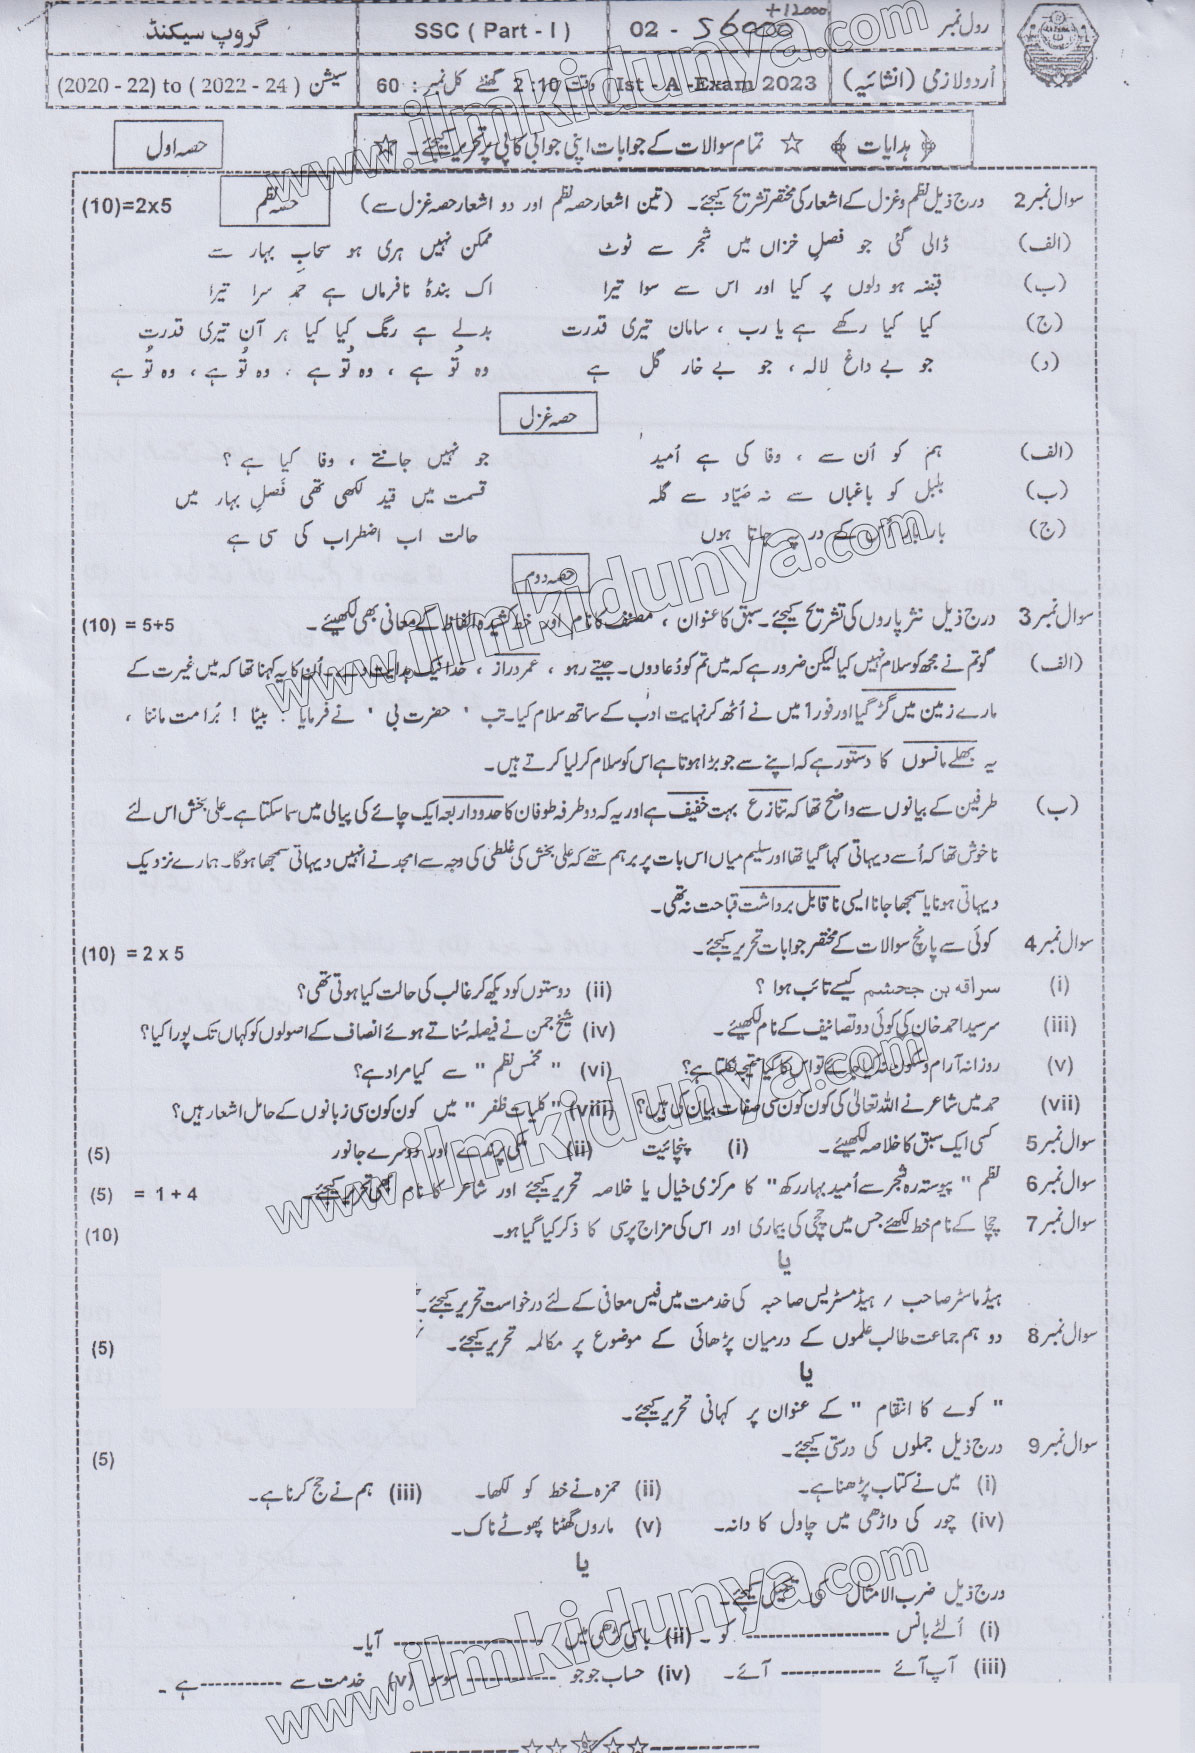 +12000
رول نمبر 02 - 56000 SSC ( Part - I ) گروپ سیکنڈ
اُردو لازمی (انشائیہ) Ist - A -Exam 2023 وقت 2:10 گھنٹے کل نمبر : 60 سیشن (2020 - 22) to ( 2022 - 24 )
﴿ ہدایات ﴾ ☆ تمام سوالات کے جوابات اپنی جوابی کاپی پر تحریر کیجئے۔ ☆ حصہ اول
سوال نمبر 2 درج ذیل نظم و غزل کے اشعار کی مختصر تشریح کیجئے۔ (تین اشعار حصہ نظم اور دو اشعار حصہ غزل سے) حصہ نظم (10)=2x5
(الف) ڈالی گئی جو فصلِ خزاں میں شجر سے ٹوٹ ممکن نہیں ہری ہو سحابِ بہار سے
(ب) قبضہ ہو دلوں پر کیا اور اس سے سوا تیرا اک بندۂ نافرماں ہے حمد سرا تیرا
(ج) کیا کیا رکھے ہے یا رب ، سامان تیری قدرت بدلے ہے رنگ کیا کیا ہر آن تیری قدرت
(د) جو بے داغ لالہ ، جو بے خار گل ہے وہ تُو ہے ، وہ تُو ہے ، وہ تُو ہے ، وہ تُو ہے
حصہ غزل
(الف) ہم کو اُن سے ، وفا کی ہے اُمید جو نہیں جانتے ، وفا کیا ہے ؟
(ب) بلبل کو باغباں سے نہ صیّاد سے گلہ قسمت میں قید لکھی تھی فَصلِ بہار میں
(ج) بار بار اُس کے در پہ جاتا ہوں حالت اب اضطراب کی سی ہے
حصہ دوم
سوال نمبر 3 درج ذیل نثر پاروں کی تشریح کیجئے۔ سبق کا عنوان ، مصنف کا نام اور خط کشیدہ الفاظ کے معانی بھی لکھیئے۔ (10) = 5+5
(الف) گو تم نے مجھ کو سلام نہیں کیا لیکن ضرور ہے کہ میں تم کو دُعا دوں۔ جیتے رہو ، عمر دراز ، خدا نیک ہدایت دے۔ اُن کا یہ کہنا تھا کہ میں غیرت کے
مارے زمین میں گڑ گیا اور فوراً میں نے اُٹھ کر نہایت ادب کے ساتھ سلام کیا۔ تب ' حضرت بی ' نے فرمایا : بیٹا ! بُرا مت ماننا ،
یہ بھلے مانسوں کا دستور ہے کہ اپنے سے جو بڑا ہوتا ہے اس کو سلام کر لیا کرتے ہیں۔
(ب) طرفین کے بیانوں سے واضح تھا کہ تنازع بہت خفیف ہے اور یہ کہ دو طرفہ طوفان کا حدود اربعہ ایک چائے کی پیالی میں سما سکتا ہے۔ علی بخش اس لئے
ناخوش تھا کہ اُسے دیہاتی کہا گیا تھا اور سلیم میاں اس بات پر برہم تھے کہ علی بخش کی غلطی کی وجہ سے امجد نے انہیں دیہاتی سمجھا ہوگا۔ ہمارے نزدیک
دیہاتی ہونا یا سمجھا جانا ایسی ناقابل برداشت قباحت نہ تھی۔
سوال نمبر 4 کوئی سے پانچ سوالات کے مختصر جوابات تحریر کیجئے۔ (10) = 2 x 5
(i) سراقہ بن جحشم کیسے تائب ہوا ؟ (ii) دوستوں کو دیکھ کر غالب کی حالت کیا ہوتی تھی؟
(iii) سرسید احمد خان کی کوئی دو تصانیف کے نام لکھیئے۔ (iv) شیخ جمن نے فیصلہ سُناتے ہوئے انصاف کے اصولوں کو کہاں تک پورا کیا؟
(v) روزانہ آرام و سکون نہ کیا جائے تو اس کا کیا نتیجہ نکلتا ہے؟ (vi) " مخمس نظم " سے کیا مراد ہے؟
(vii) حمد میں شاعر نے اللہ تعالیٰ کی کون کون سی صفات بیان کی ہیں؟ (viii) "کلیات ظفر" میں کون کون سی زبانوں کے حامل اشعار ہیں؟
سوال نمبر 5 کسی ایک سبق کا خلاصہ لکھیئے۔ (i) پنچائیت (ii) ملکی پرندے اور دوسرے جانور (5)
سوال نمبر 6 نظم " پیوستہ رہ شجر سے اُمید بہار رکھ" کا مرکزی خیال یا خلاصہ تحریر کیجئے اور شاعر کا نام بھی تحریر کیجئے۔ (5) = 1 + 4
سوال نمبر 7 چچا کے نام خط لکھئے جس میں چچی کی بیماری اور اس کی مزاج پرسی کا ذکر کیا گیا ہو۔ (10)
یا
ہیڈ ماسٹر صاحب / ہیڈ مسٹریس صاحبہ کی خدمت میں فیس معافی کے لئے درخواست تحریر کیجئے۔
سوال نمبر 8 دو ہم جماعت طالب علموں کے درمیان پڑھائی کے موضوع پر مکالمہ تحریر کیجئے۔ (5)
یا
" کوے کا انتقام " کے عنوان پر کہانی تحریر کیجئے۔
سوال نمبر 9 درج ذیل جملوں کی درستی کیجئے۔ (5)
(i) میں نے کتاب پڑھنا ہے۔ (ii) حمزہ نے خط کو لکھا۔ (iii) ہم نے حج کرنا ہے۔
(iv) چور کی داڑھی میں چاول کا دانہ۔ (v) ماروں گھٹنا پھوٹے ناک۔
یا
درج ذیل ضرب الامثال کی تکمیل کیجئے۔
(i) اُلٹے بانس ---------- کو ۔ (ii) باسی کڑھی میں ---------- آیا۔
(iii) آپ آئے ---------- آئے۔ (iv) حساب جو جو ---------- سو سو (v) خدمت سے ---------- ہے ۔
www.ilmkidunya.com
www.ilmkidunya.com
www.ilmkidunya.com
www.ilmkidunya.com